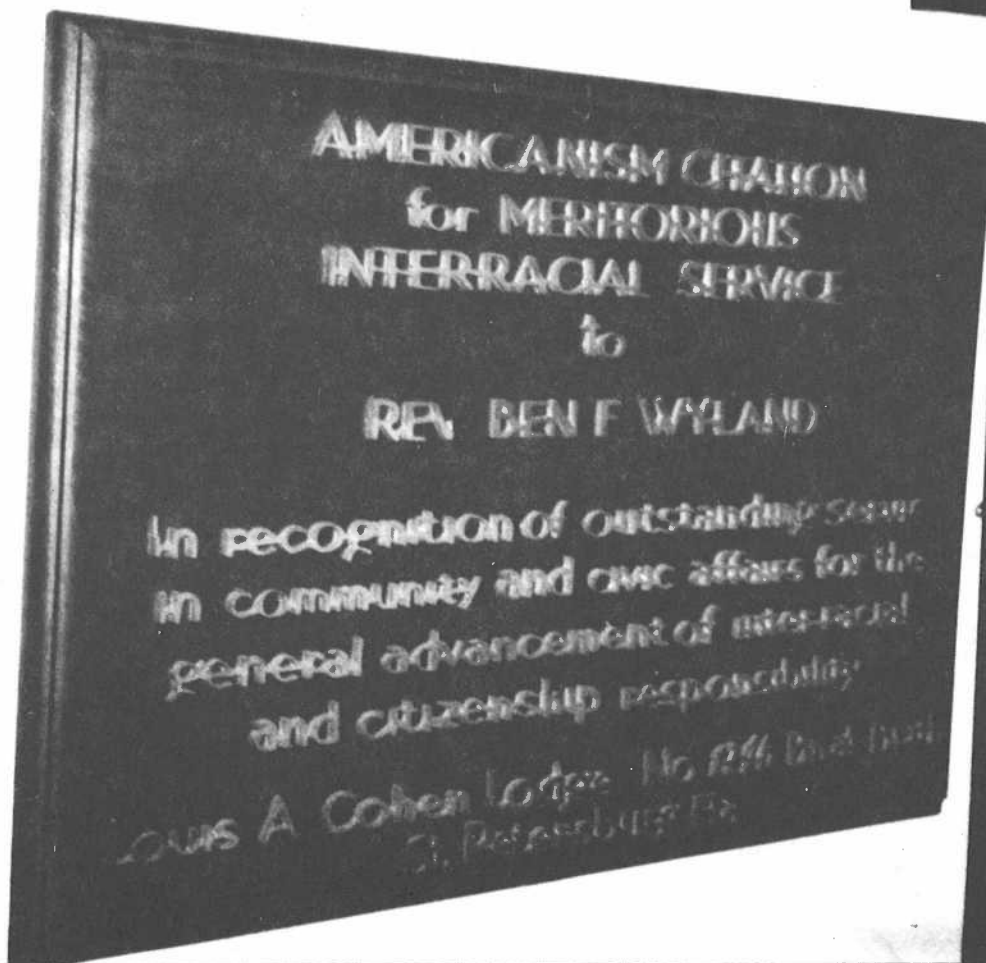 AMERICANISM CITATION
for MERITORIOUS
INTER-RACIAL SERVICE
to
REV. BEN F WYLAND
In recognition of outstanding
in community and civic affairs for the
general advancement of inter-racial
and citizenship responsibility
Louis A Cohen Lodge No B'nai B'rith
St. Petersburg Fla